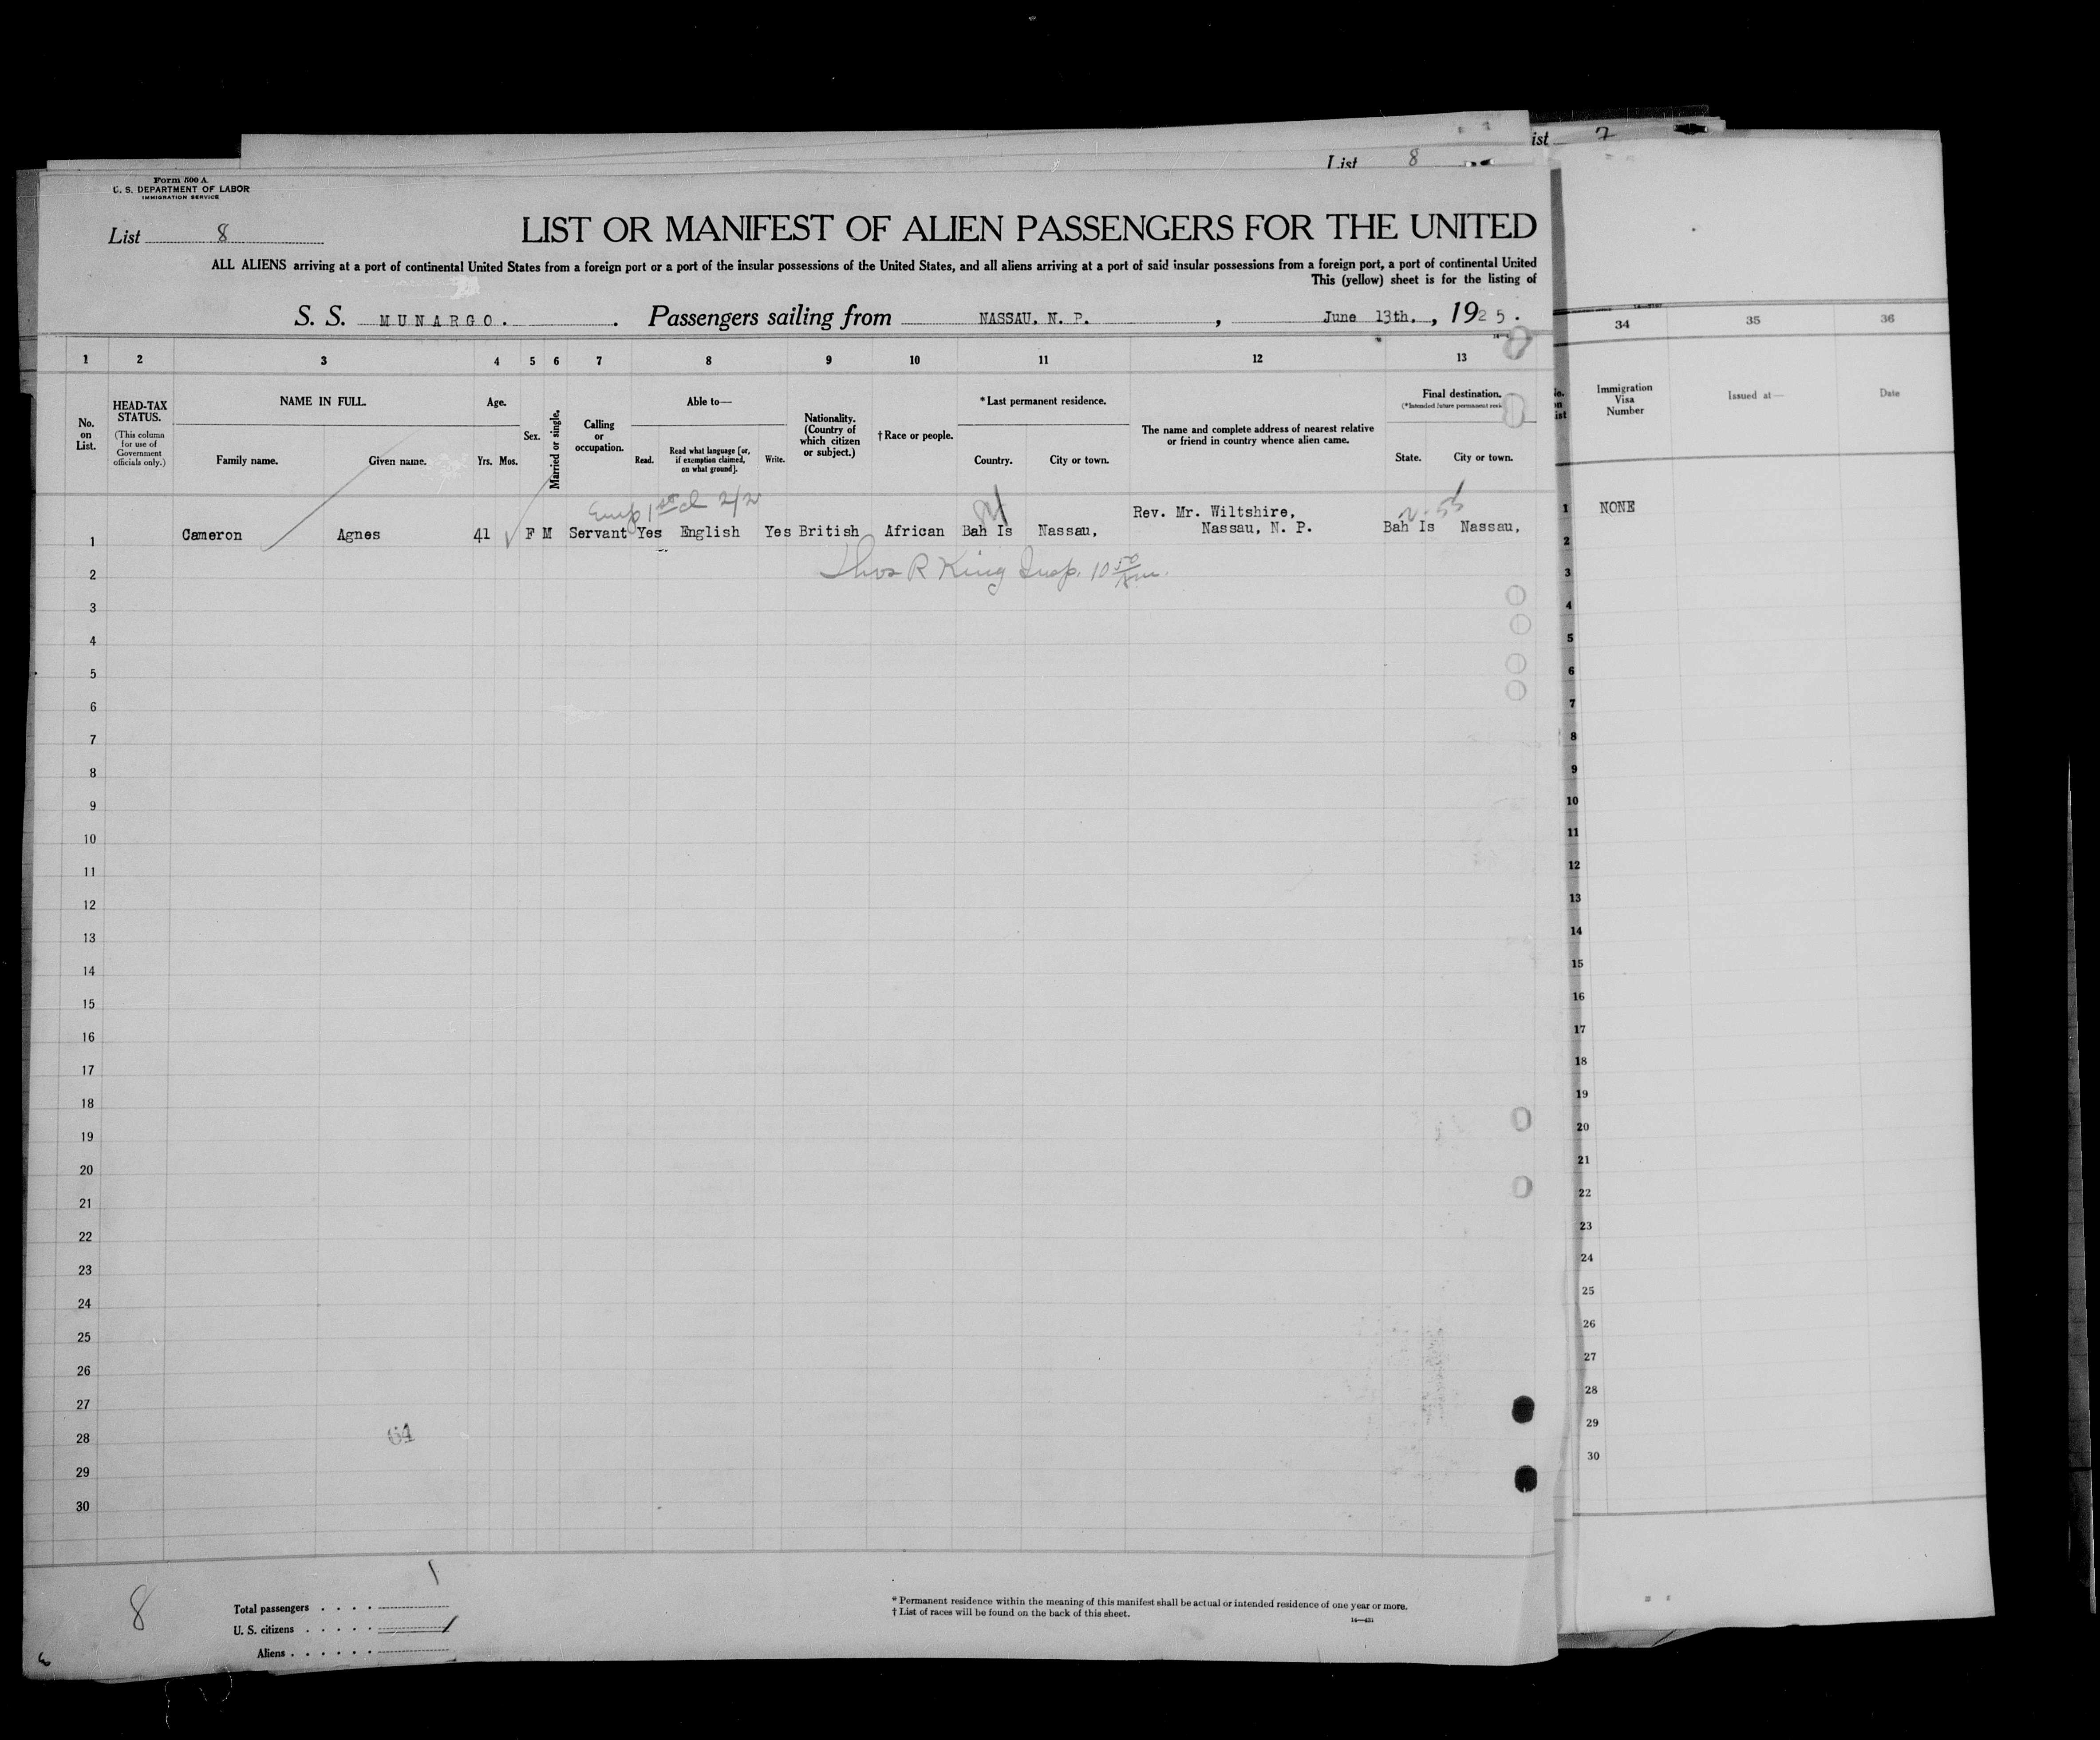 ist 7
List 8
Form 500 A
U. S. DEPARTMENT OF LABOR
IMMIGRATION SERVICE
List 8
LIST OR MANIFEST OF ALIEN PASSENGERS FOR THE UNITED
ALL ALIENS arriving at a port of continental United States from a foreign port or a port of the insular possessions of the United States, and all aliens arriving at a port of said insular possessions from a foreign port, a port of continental United
This (yellow) sheet is for the listing of
S. S. MUNARGO. . Passengers sailing from NASSAU, N. P. , June 13th. , 1925.
1 2 3 4 5 6 7 8 9 10 11 12 13
No. on List.
HEAD-TAX STATUS.
(This column for use of Government officials only.)
NAME IN FULL.
Family name. Given name.
Age.
Yrs. Mos.
Sex.
Married or single.
Calling or occupation.
Able to—
Read. Read what language [or, if exemption claimed, on what ground]. Write.
Nationality. (Country of which citizen or subject.)
†Race or people.
*Last permanent residence.
Country. City or town.
The name and complete address of nearest relative or friend in country whence alien came.
Final destination.
(*Intended future permanent
State. City or town.
Rev. Mr. Wiltshire,
1 Cameron Agnes 41 F M Servant Yes English Yes British African Bah Is Nassau, Nassau, N. P. Bah Is Nassau,
2 Thos R King Insp. 10 50
3
4
5
6
7
8
9
10
11
12
13
14
15
16
17
18
19
20
21
22
23
24
25
26
27
28
29
30
64
8
1
Total passengers
U. S. citizens
Aliens
* Permanent residence within the meaning of this manifest shall be actual or intended residence of one year or more.
† List of races will be found on the back of this sheet.
34 35 36
Immigration Visa Number
Issued at—
Date
1 NONE
2
3
4
5
6
7
8
9
10
11
12
13
14
15
16
17
18
19
20
21
22
23
24
25
26
27
28
29
30